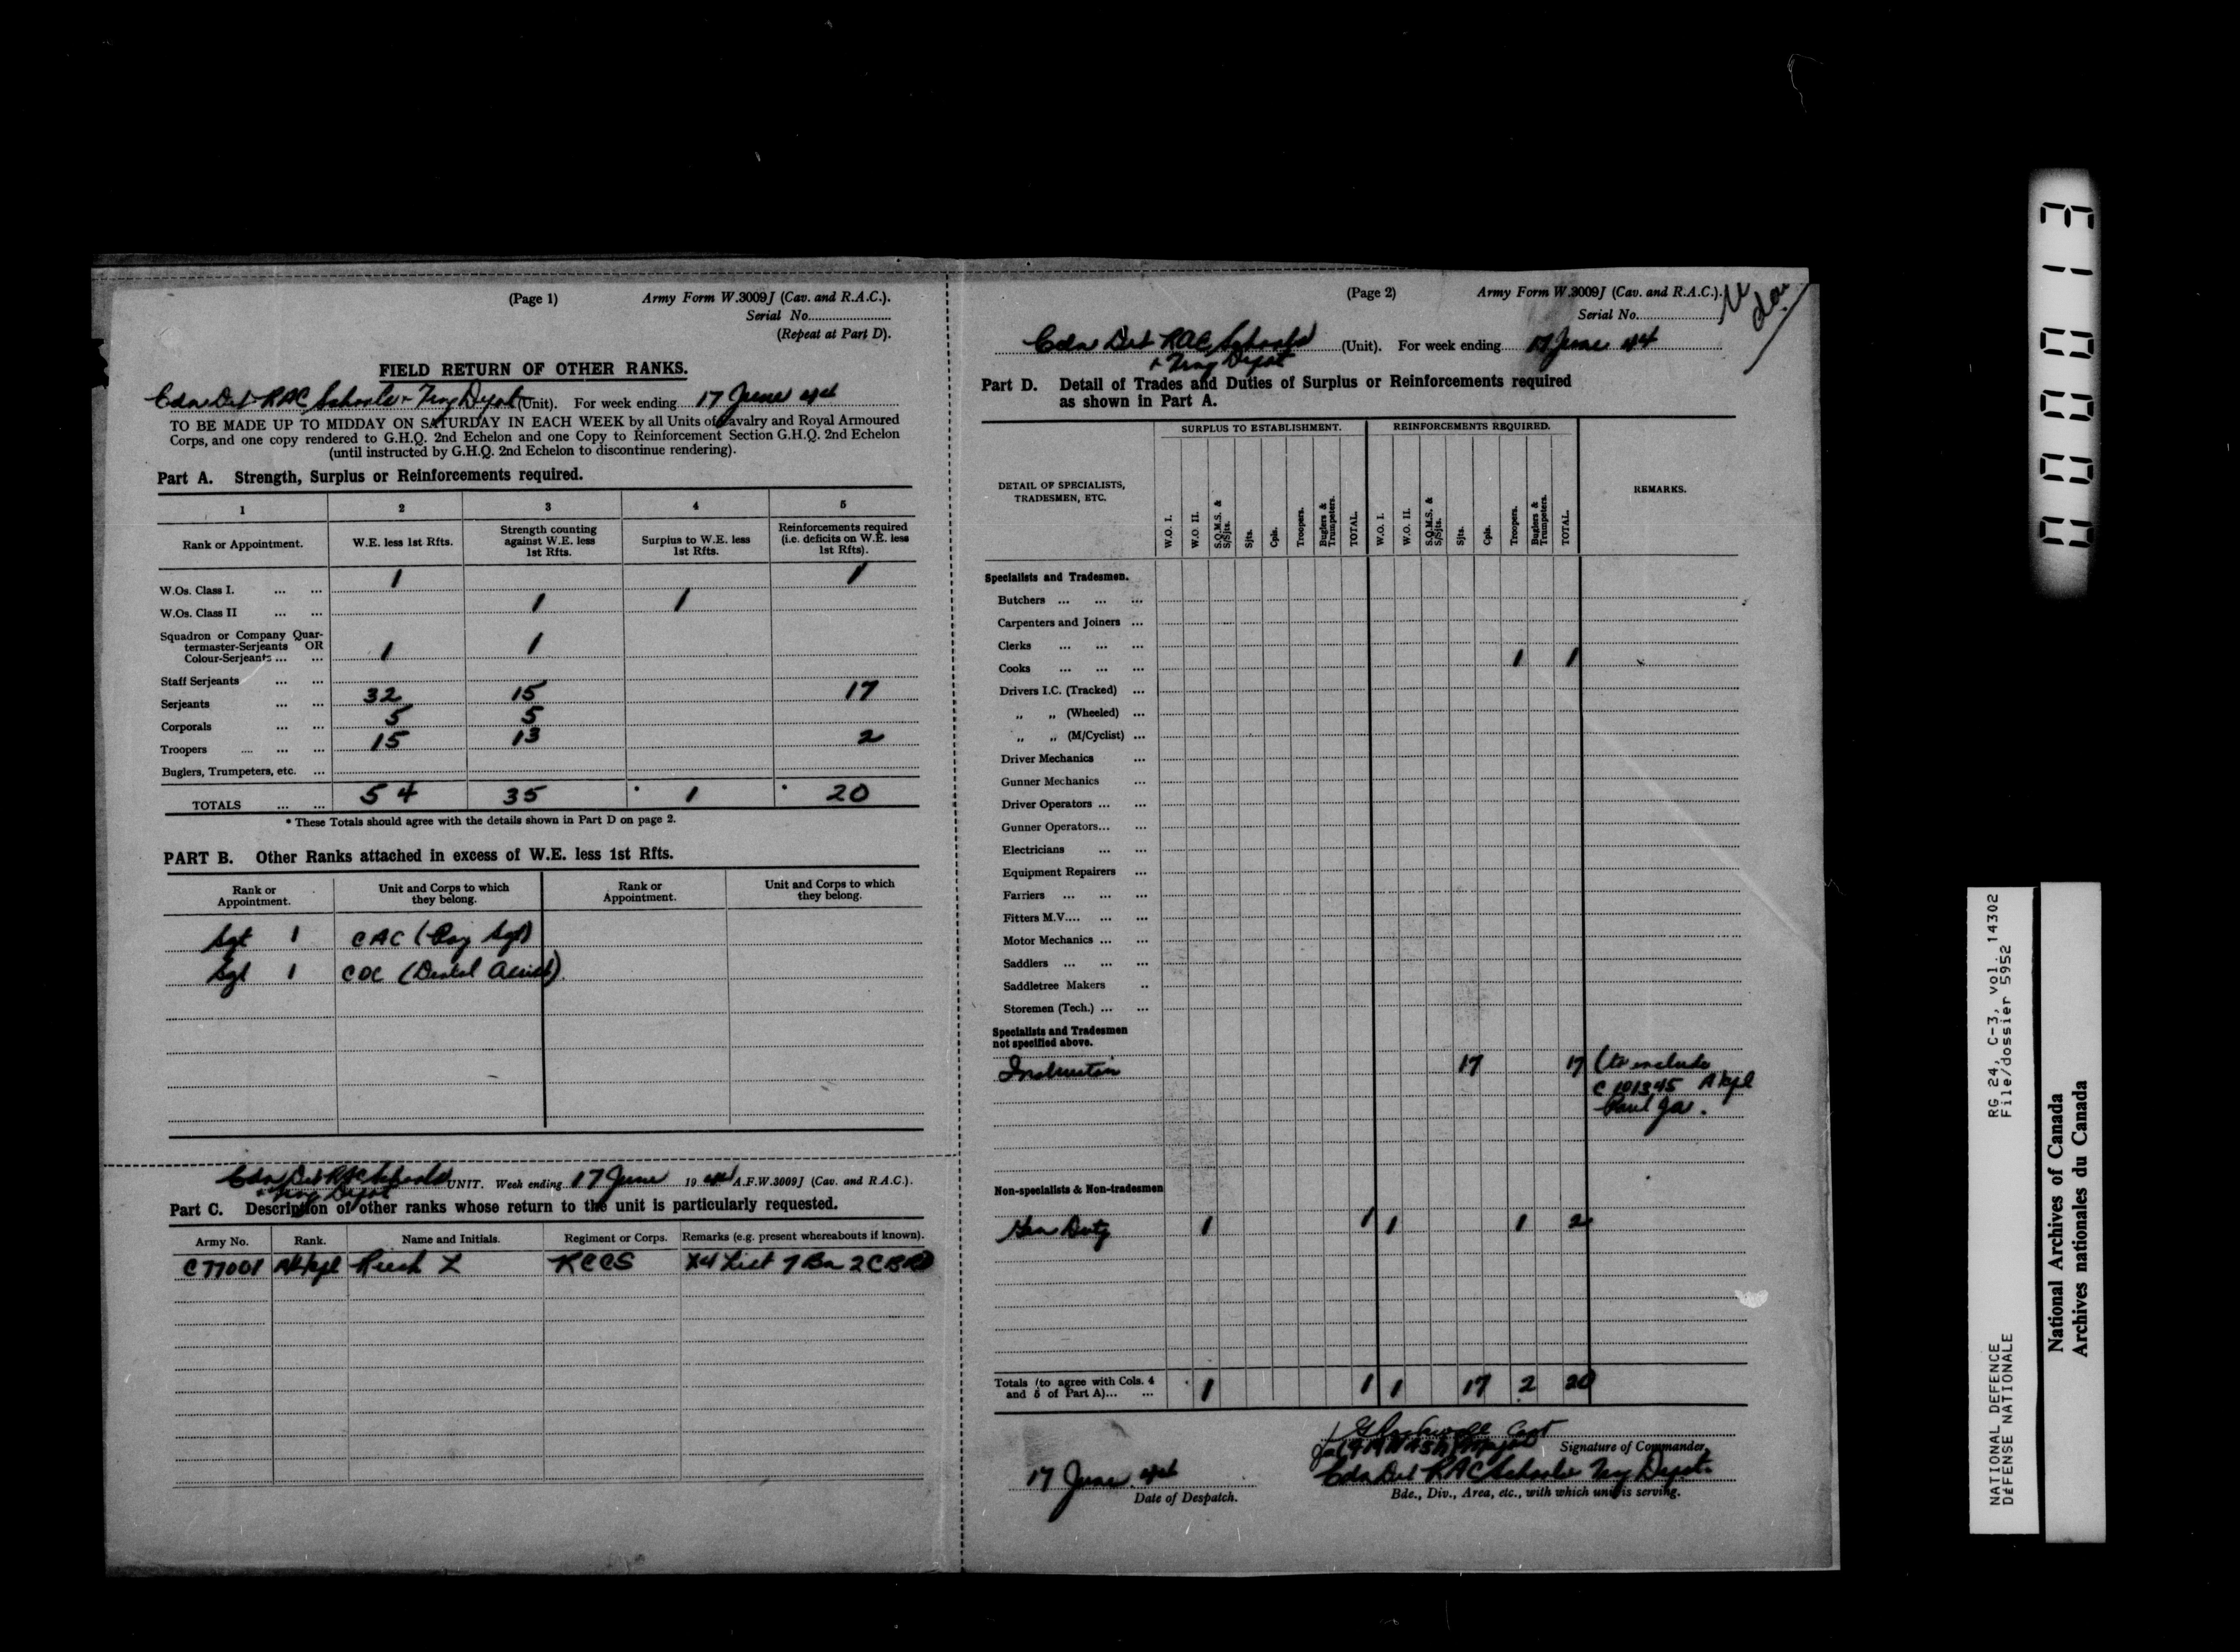 (Page 1) Army Form W.3009J (Cav. and R.A.C.).
Serial No.
(Repeat at Part D).
FIELD RETURN OF OTHER RANKS.
Cdn Det RAC Schools + Trng Depot (Unit). For week ending 17 June 44
TO BE MADE UP TO MIDDAY ON SATURDAY IN EACH WEEK by all Units of Cavalry and Royal Armoured
Corps, and one copy rendered to G.H.Q. 2nd Echelon and one Copy to Reinforcement Section G.H.Q. 2nd Echelon
(until instructed by G.H.Q. 2nd Echelon to discontinue rendering).
Part A. Strength, Surplus or Reinforcements required.
1 2 3 4 5
Rank or Appointment. W.E. less 1st Rfts. Strength counting against W.E. less 1st Rfts. Surplus to W.E. less 1st Rfts. Reinforcements required (i.e. deficits on W.E. less 1st Rfts).
W.Os. Class I. ... ... 1 1
W.Os. Class II ... ... 1 1
Squadron or Company Quar-
termaster-Serjeants OR
Colour-Serjeants ... ... 1 1
Staff Serjeants ... ...
Serjeants ... ... 32 15 17
Corporals ... ... 5 5
Troopers ... ... ... 15 13 2
Buglers, Trumpeters, etc. ...
TOTALS ... ... 54 35 * 1 * 20
* These Totals should agree with the details shown in Part D on page 2.
PART B. Other Ranks attached in excess of W.E. less 1st Rfts.
Rank or Appointment. Unit and Corps to which they belong. Rank or Appointment. Unit and Corps to which they belong.
Sgt 1 CAC (Pay Sgt)
Sgt 1 CDC (Dental Assist)
Cdn Det RAC Schools UNIT. Week ending 17 June 1944 A.F.W.3009J (Cav. and R.A.C.).
+ Trng Depot
Part C. Description of other ranks whose return to the unit is particularly requested.
Army No. Rank. Name and Initials. Regiment or Corps. Remarks (e.g. present whereabouts if known).
C77001 RCCS X4 List 7 Bn 2 CBRD
(Page 2) Army Form W.3009J (Cav. and R.A.C.).
Serial No.
Cdn Det RAC Schools (Unit). For week ending 17 June 44
+ Trng Depot
Part D. Detail of Trades and Duties of Surplus or Reinforcements required
as shown in Part A.
DETAIL OF SPECIALISTS, TRADESMEN, ETC. SURPLUS TO ESTABLISHMENT. REINFORCEMENTS REQUIRED. REMARKS.
W.O. I. W.O. II. S.Q.M.S. & S/Sjts. Sjts. Cpls. Troopers. Buglers & Trumpeters. TOTAL. W.O. I. W.O. II. S.Q.M.S. & S/Sjts. Sjts. Cpls. Troopers. Buglers & Trumpeters. TOTAL.
Specialists and Tradesmen.
Butchers ... ... ...
Carpenters and Joiners ...
Clerks ... ... ...
Cooks ... ... ... 1 1
Drivers I.C. (Tracked) ...
„ „ (Wheeled) ...
„ „ (M/Cyclist) ...
Driver Mechanics ...
Gunner Mechanics ...
Driver Operators ... ...
Gunner Operators... ...
Electricians ... ...
Equipment Repairers ...
Farriers ... ... ...
Fitters M.V.... ... ...
Motor Mechanics ... ...
Saddlers ... ... ...
Saddletree Makers ..
Storemen (Tech.) ... ...
Specialists and Tradesmen
not specified above.
17 17 (to include
C 101345 A/Cpl
Paul
Non-specialists & Non-tradesmen
Gen Duty 1 1 1 1 2
Totals (to agree with Cols. 4
and 5 of Part A)... ... 1 1 1 17 2 20
Capt
Signature of Commander.
17 June 44 Cdn Det RAC Schools + Trng Depot
Date of Despatch. Bde., Div., Area, etc., with which unit is serving.
000013
RG 24, C-3, vol. 14302
File/dossier 5952
NATIONAL DEFENCE
DÉFENSE NATIONALE
National Archives of Canada
Archives nationales du Canada